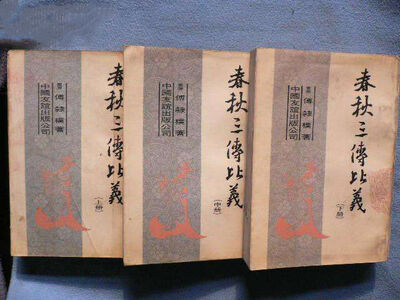 春秋三傳比義
傅隸樸著
中國友誼出版公司
(上册)
春秋三傳比義
傅隸樸著
中國友誼出版公司
(中册)
春秋三傳比義
傅隸樸著
中國友誼出版公司
(下册)